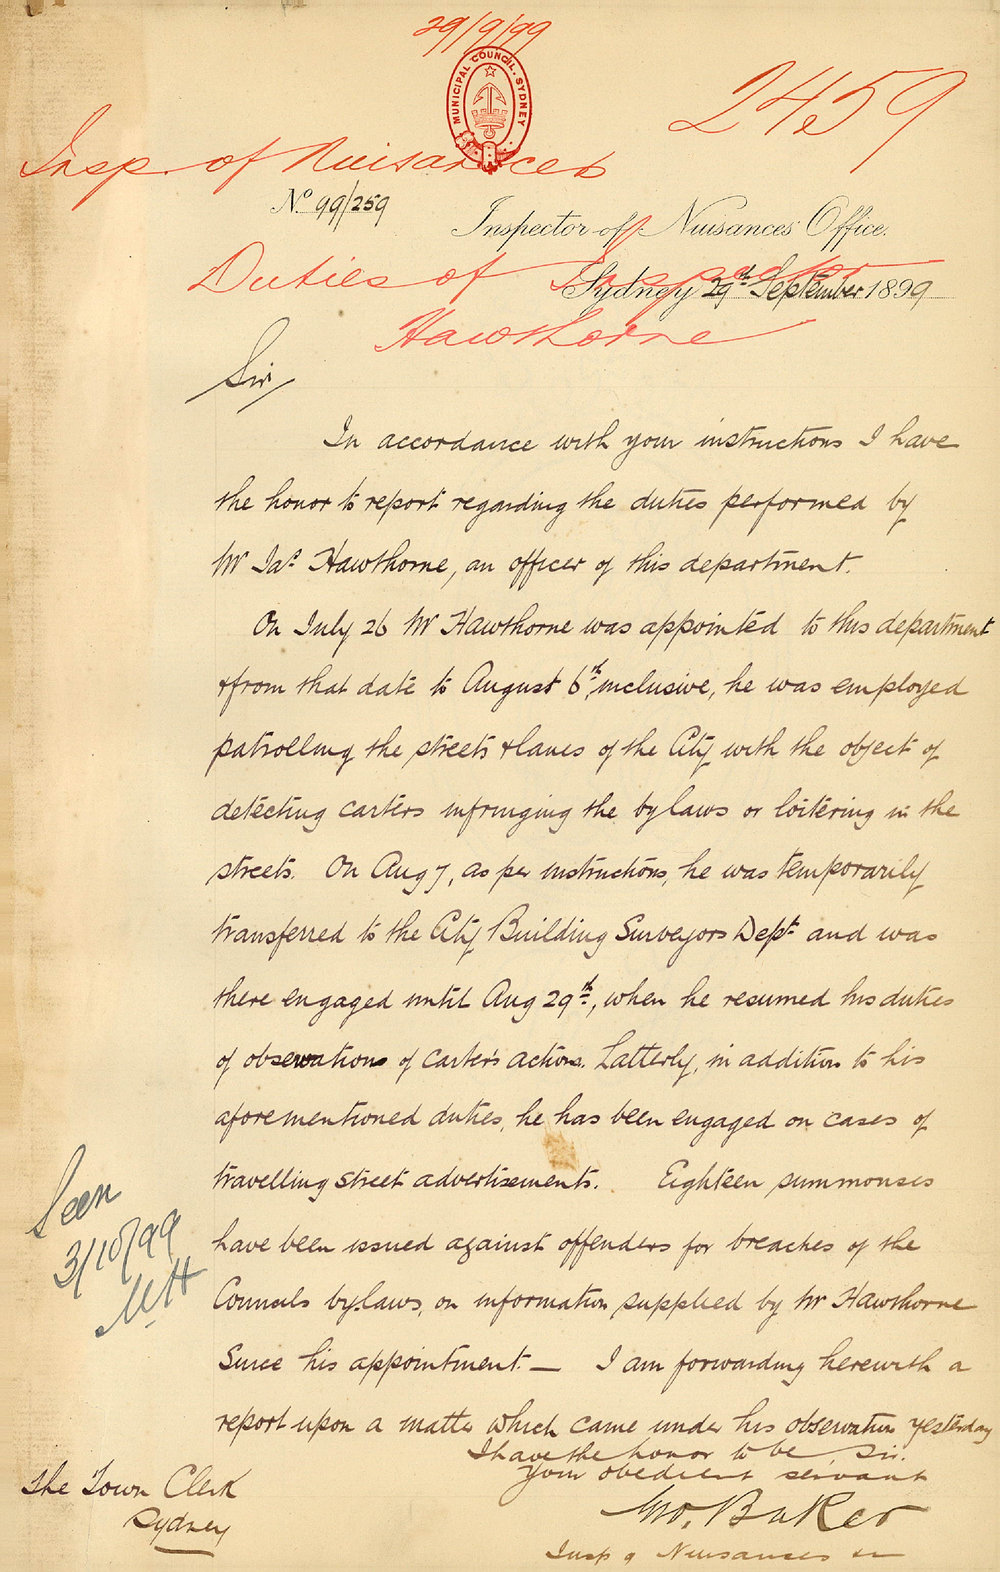 29/9/99
MUNICIPAL COUNCIL. SYDNEY
2459
Insp. of Nuisances
No 99/259
Inspector of Nuisances Office.
Duties of Inspector
Sydney 29th September 1899
Hawthorne
Sir,
In accordance with your instructions I have
the honor to report regarding the duties performed by
Mr Jas. Hawthorne, an officer of this department.
On July 26 Mr Hawthorne was appointed to this department
& from that date to August 6th, inclusive, he was employed
patrolling the streets & lanes of the City with the object of
detecting carters infringing the by laws or loitering in the
streets. On Aug 7, as per instructions, he was temporarily
transferred to the City Building Surveyors Dept. and was
there engaged until Aug 29th, when he resumed his duties
of observations of carter's actions. Latterly, in addition to his
aforementioned duties, he has been engaged on cases of
travelling street advertisements. Eighteen summonses
have been issued against offenders for breaches of the
Councils by-laws, on information supplied by Mr Hawthorne
Since his appointment. — I am forwarding herewith a
report upon a matter which came under his observation yesterday
I have the honor to be, Sir.
Your obedient servant
Geo. Baker
Insp of Nuisances &c
The Town Clerk
Sydney
Seen
3/10/99